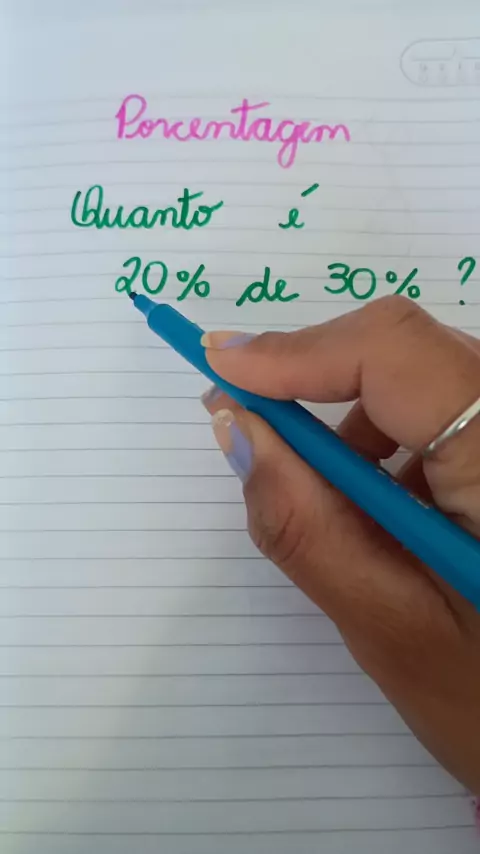 Porcentagem
Quanto é
20% de 30% ?